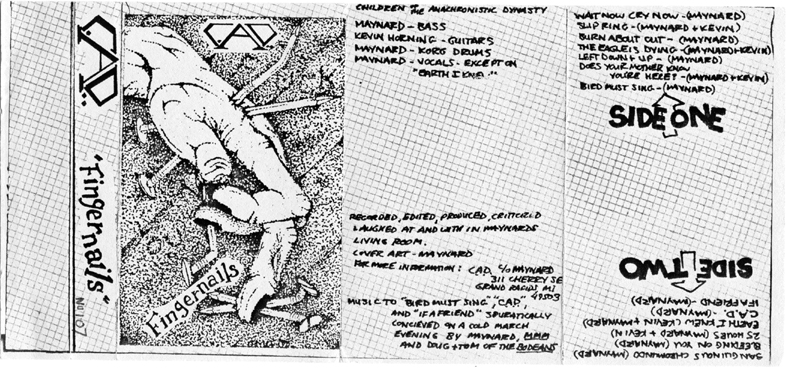 C.A.D.
"Fingernails"
NO. 107
CAD
Fingernails
CHILDREN OF THE ANACHRONISTIC DYNASTY
MAYNARD - BASS
KEVIN HORNING - GUITARS
MAYNARD - KORG DRUMS
MAYNARD - VOCALS - EXCEPT ON
"EARTH I KNEW"
RECORDED, EDITED, PRODUCED, CRITICIZED
LAUGHED AT AND WITH IN MAYNARDS
LIVING ROOM.
COVER ART - MAYNARD
FOR MORE INFORMATION: CAD, C/O MAYNARD
311 CHERRY SE
GRAND RAPIDS MI
49503
MUSIC TO "BIRD MUST SING", "CAD",
AND "IF A FRIEND" SPURATICALLY
CONCIEVED ON A COLD MARCH
EVENING BY MAYNARD, MMM
AND DOUG + TOM OF THE BODEANS
WAIT NOW CRY NOW - (MAYNARD)
SLIP RING - (MAYNARD + KEVIN)
BURN ABOUT OUT - (MAYNARD)
THE EAGLE IS DYING - (MAYNARD + KEVIN)
LEFT DOWN + UP - (MAYNARD)
DOES YOUR MOTHER KNOW
YOU'RE HERE? - (MAYNARD + KEVIN)
BIRD MUST SING - (MAYNARD)
SIDE ONE
SIDE TWO
IF A FRIEND - (MAYNARD)
C.A.D. - (MAYNARD)
EARTH I KNEW (KEVIN + MAYNARD)
25 HOURS (MAYNARD + KEVIN)
BLEEDING ON YOU (MAYNARD)
SANGUINOUS CHROMONDO (MAYNARD)